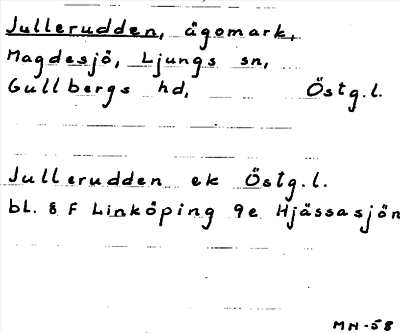 Jullerudden, ägomark,
Magdesjö, Ljungs sn,
Gullbergs hd, Östg.l.
Jullerudden ek Östg.l.
bl. 8 F Linköping 9e Hjässasjön
MN-58